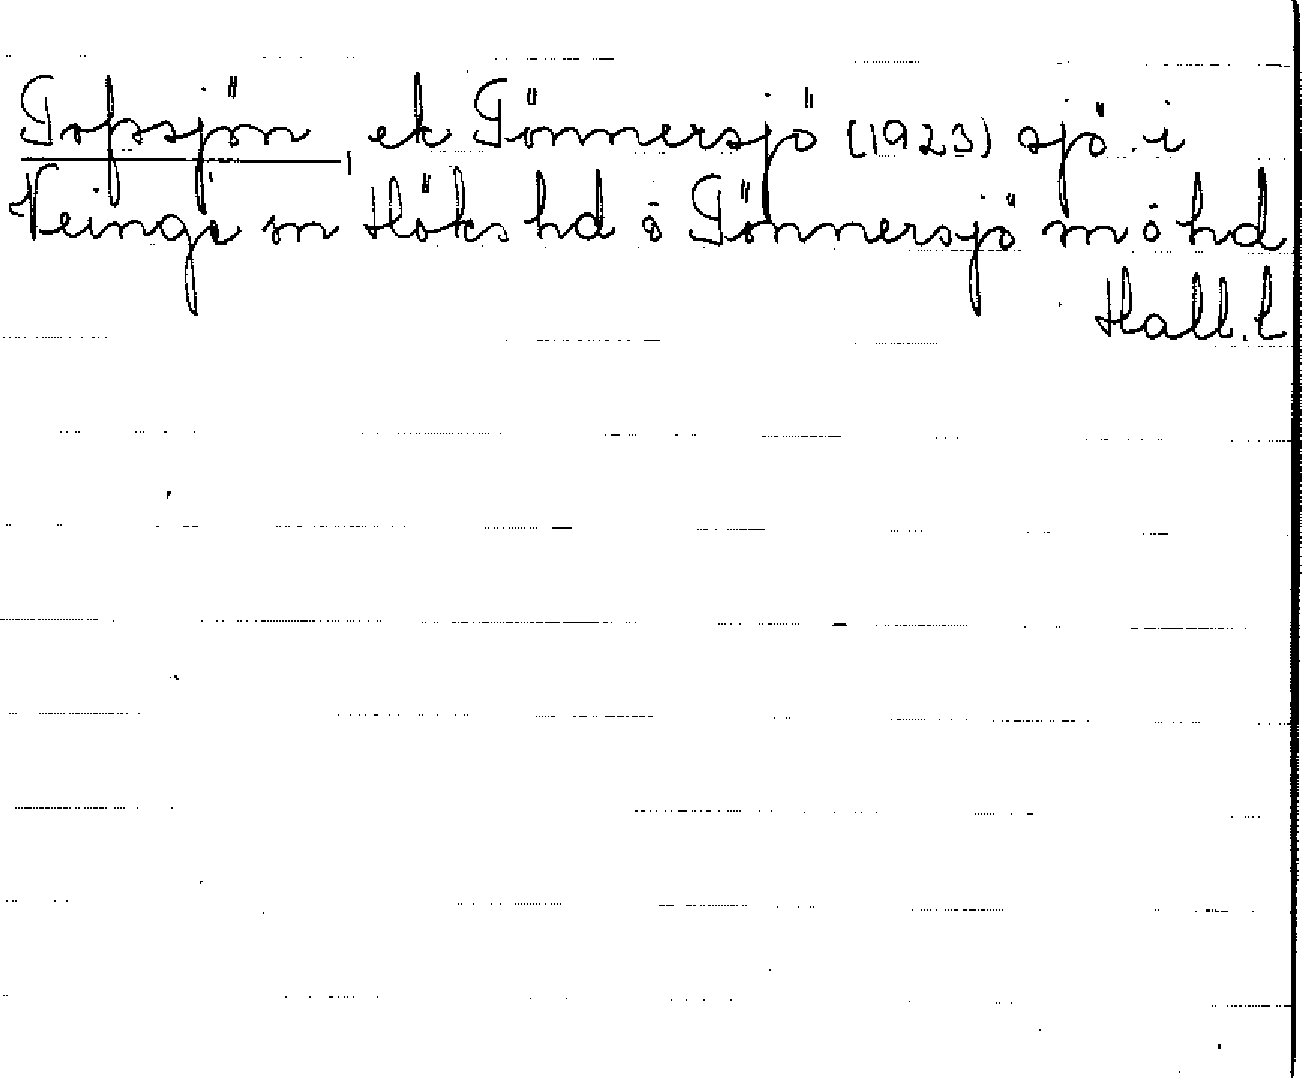 Topsjön, ek Tönnersjö (1923) sjö i
Veinge sn Höks hd o Tönnersjö sn o hd
Hall. l